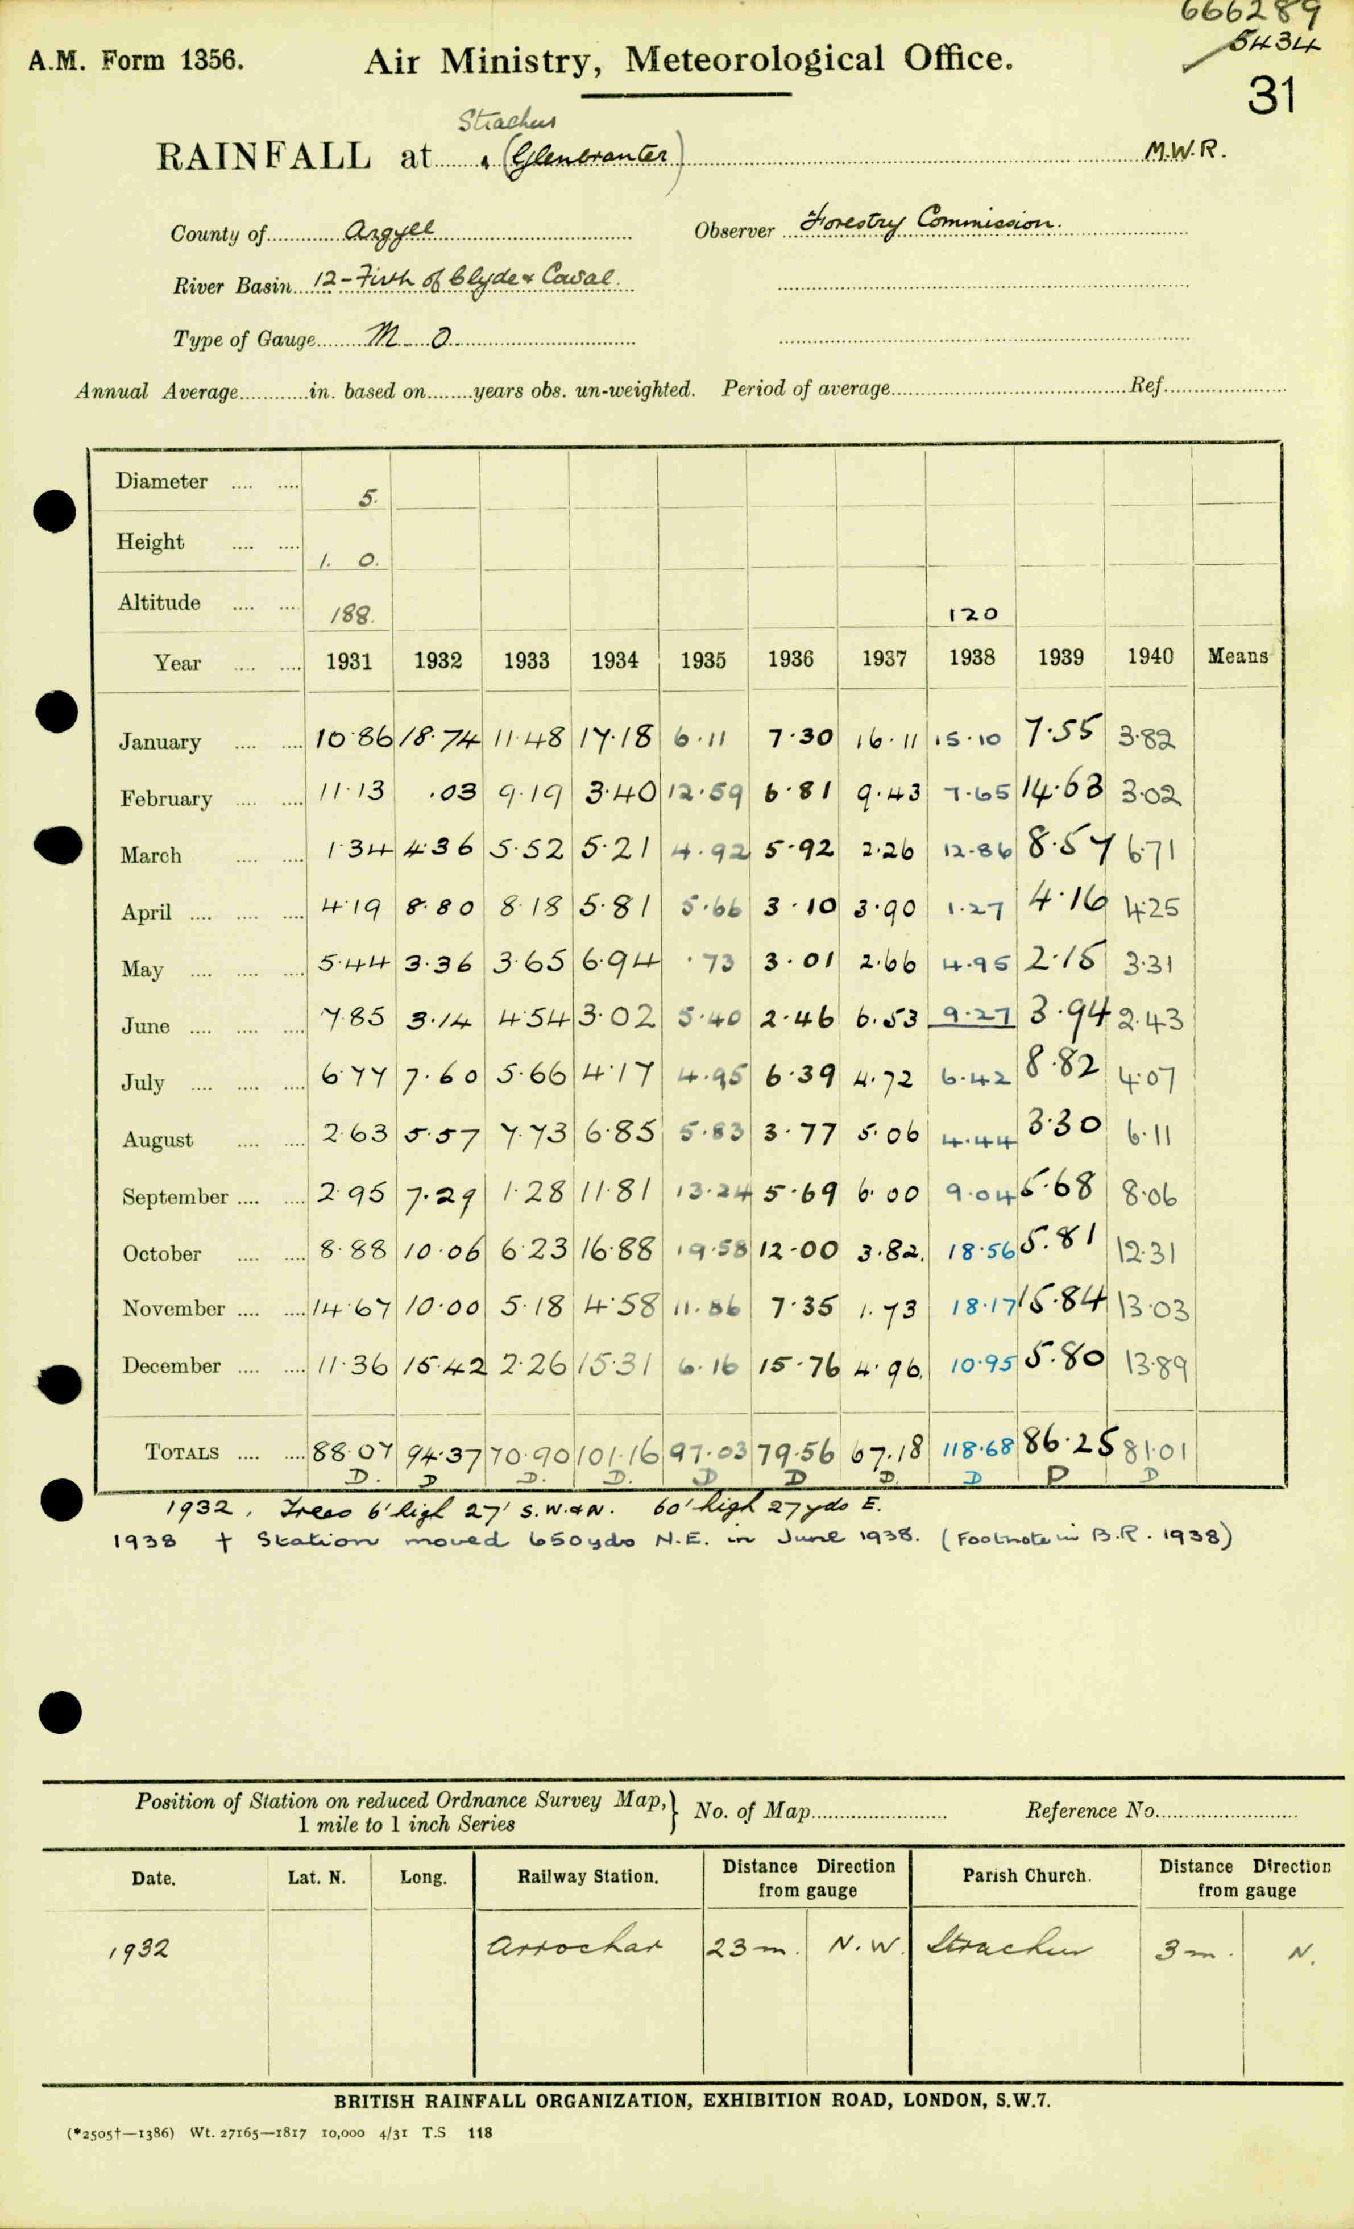 666289
5434
31
A.M. Form 1356.
Air Ministry, Meteorological Office.
Strachur
RAINFALL at (Glenbranter) M.W.R.
County of Argyll Observer Forestry Commission.
River Basin 12-Firth of Clyde & Cowal.
Type of Gauge M O
Annual Average in. based on years obs. un-weighted. Period of average Ref.
Diameter 5.
Height 1. 0.
Altitude 188. 120
Year 1931 1932 1933 1934 1935 1936 1937 1938 1939 1940 Means
January 10.86 18.74 11.48 17.18 6.11 7.30 16.11 15.10 7.55 3.82
February 11.13 .03 9.19 3.40 12.59 6.81 9.43 7.65 14.63 3.02
March 1.34 4.36 5.52 5.21 4.92 5.92 2.26 12.86 8.57 6.71
April 4.19 8.80 8.18 5.81 5.66 3.10 3.90 1.27 4.16 4.25
May 5.44 3.36 3.65 6.94 .73 3.01 2.66 4.95 2.15 3.31
June 7.85 3.14 4.54 3.02 5.40 2.46 6.53 9.27 3.94 2.43
July 6.77 7.60 5.66 4.17 4.95 6.39 4.72 6.42 8.82 4.07
August 2.63 5.57 7.73 6.85 5.83 3.77 5.06 4.44 3.30 6.11
September 2.95 7.29 1.28 11.81 13.24 5.69 6.00 9.04 5.68 8.06
October 8.88 10.06 6.23 16.88 19.58 12.00 3.82 18.56 5.81 12.31
November 14.67 10.00 5.18 4.58 11.86 7.35 1.73 18.17 15.84 13.03
December 11.36 15.42 2.26 15.31 6.16 15.76 4.96 10.95 5.80 13.89
TOTALS 88.07 94.37 70.90 101.16 97.03 79.56 67.18 118.68 86.25 81.01
D. D D. D. D D D. D D D
1932. Trees 6' high 27' S.W. & N. 60' high 27 yds E.
1938 † Station moved 650 yds N.E. in June 1938. (Footnote in B.R. 1938)
Position of Station on reduced Ordnance Survey Map, 1 mile to 1 inch Series } No. of Map Reference No.
Date. Lat. N. Long. Railway Station. Distance Direction from gauge Parish Church. Distance Direction from gauge
1932 Arrochar 23 m. N.W. Strachur 3 m. N.
BRITISH RAINFALL ORGANIZATION, EXHIBITION ROAD, LONDON, S.W.7.
(*2505†—1386) Wt. 27165—1817 10,000 4/31 T.S 118